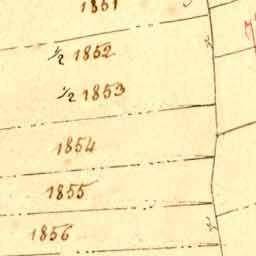 1851
1/2 1852
1/2 1853
1854
1855
1856